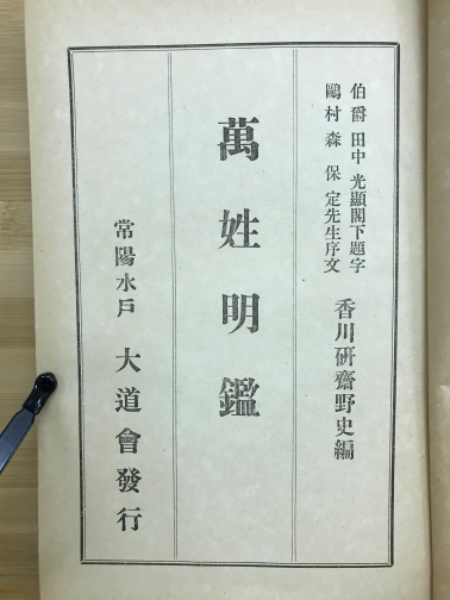 伯爵 田中光顯閣下題字
鷗村 森保定先生序文
香川硏齋野史編
萬姓明鑑
常陽水戶 大道會發行